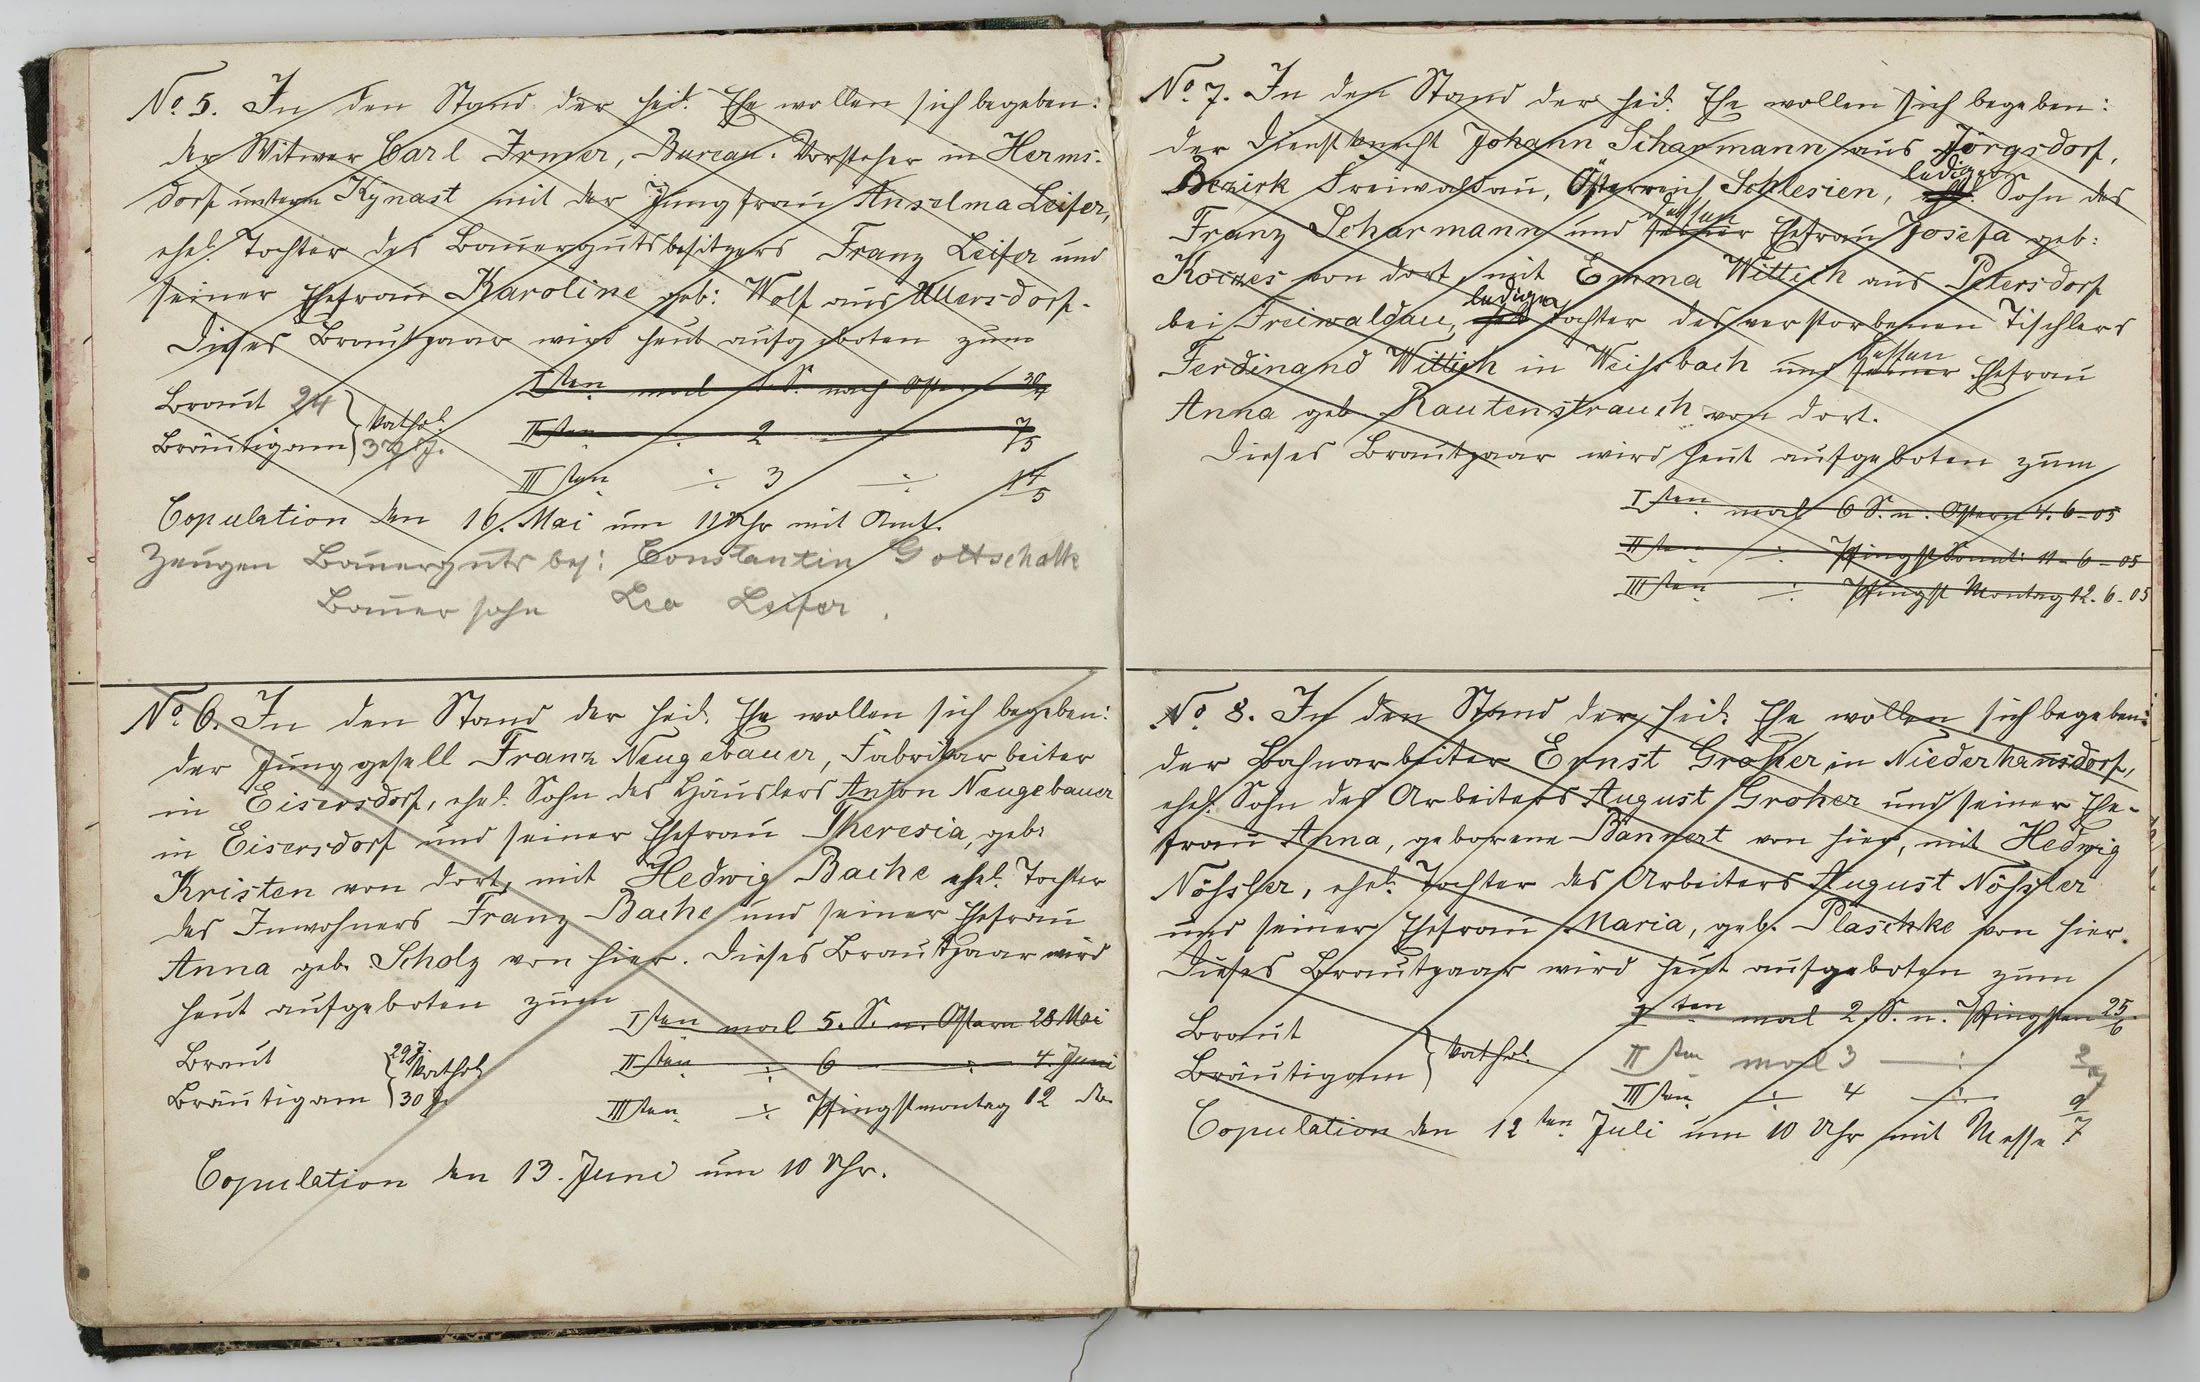 No 5. In den Stand der heil. Ehe wollen sich begeben:
der Witwer Carl Irmer, Bureau-Vorsteher in Herms-
dorf unterm Kynast mit der Jungfrau Anselma Leifer,
ehel. Tochter des Bauergutsbesitzers Franz Leifer und
seiner Ehefrau Karoline geb: Wolf aus Ullersdorf.
Dieses Brautpaar wird heut aufgeboten zum
Isten mal 1. S. nach Ostern 30/4
Braut 24 kathol.
IIten ÷ 2 ÷ 7/5
Bräutigam 37 J.
IIIten ÷ 3 ÷ 14/5
Copulation den 16. Mai um 11 Uhr mit Amt.
Zeugen Bauerguts bes: Constantin Gottschalk
Bauersohn Leo Leifer.
No 6. In den Stand der heil. Ehe wollen sich begeben:
der Junggesell Franz Neugebauer, Fabrikarbeiter
in Eisersdorf, ehel. Sohn des Häuslers Anton Neugebauer
in Eisersdorf und seiner Ehefrau Theresia, geb:
Kristen von dort, mit Hedwig Bache ehel. Tochter
des Inwohners Franz Bache und seiner Ehefrau
Anna geb. Scholz von hier. Dieses Brautpaar wird
heut aufgeboten zum
Isten mal 5. S. n. Ostern 28 Mai
Braut 29 J. kathol.
IIten ÷ 6 ÷ 4. Juni
Bräutigam 30 J.
IIIten ÷ Pfingstmontag 12 do.
Copulation den 13. Juni um 10 Uhr.
No. 7. In den Stand der heil. Ehe wollen sich begeben:
der Dienstknecht Johann Scharmann aus Jörgsdorf,
Bezirk Freiwaldau, Österreich Schlesien, lediger Sohn des
Franz Scharmann und dessen seiner Ehefrau Josefa geb:
von dort, mit Emma Wittich aus Petersdorf
bei Freiwaldau, ledige ehel. Tochter des verstorbenen Tischlers
Ferdinand Wittich in Weihsbach und dessen seiner Ehefrau
Anna geb. Rautenstrauch von dort.
Dieses Brautpaar wird heut aufgeboten zum
Isten mal 6 S. n. Ostern 4. 6-05
IIten ÷ Pfingst Sonnt: 11-6-05
IIIten ÷ Pfingst Montag 12. 6-05
No 8. In den Stand der heil. Ehe wollen sich begeben:
der Bahnarbeiter Ernst Groher in Niederhansdorf,
ehel. Sohn des Arbeiters August Groher und seiner Ehe-
frau Anna, geborene Bannert von hier, mit Hedwig
Nöhsler, ehel. Tochter des Arbeiters August Nöhsler
und seiner Ehefrau Maria, geb. Pläschke von hier.
Dieses Brautpaar wird heut aufgeboten zum
Iten mal 2. S. n. Pfingsten 25/6.
Braut kathol.
IIten mal 3 ÷ 2/7
Bräutigam
IIIten ÷ 4 ÷ 9/7
Copulation den 12ten Juli um 10 Uhr mit Messe.